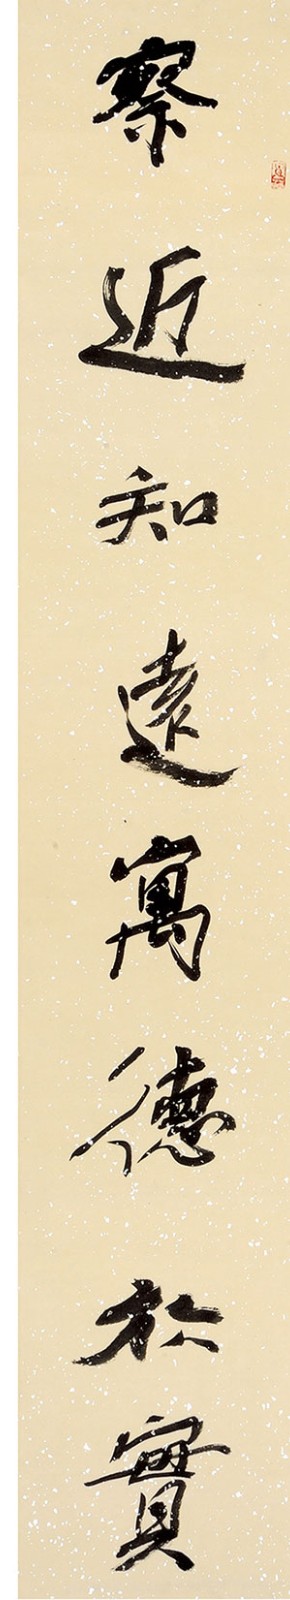 察近知遠寓德於實